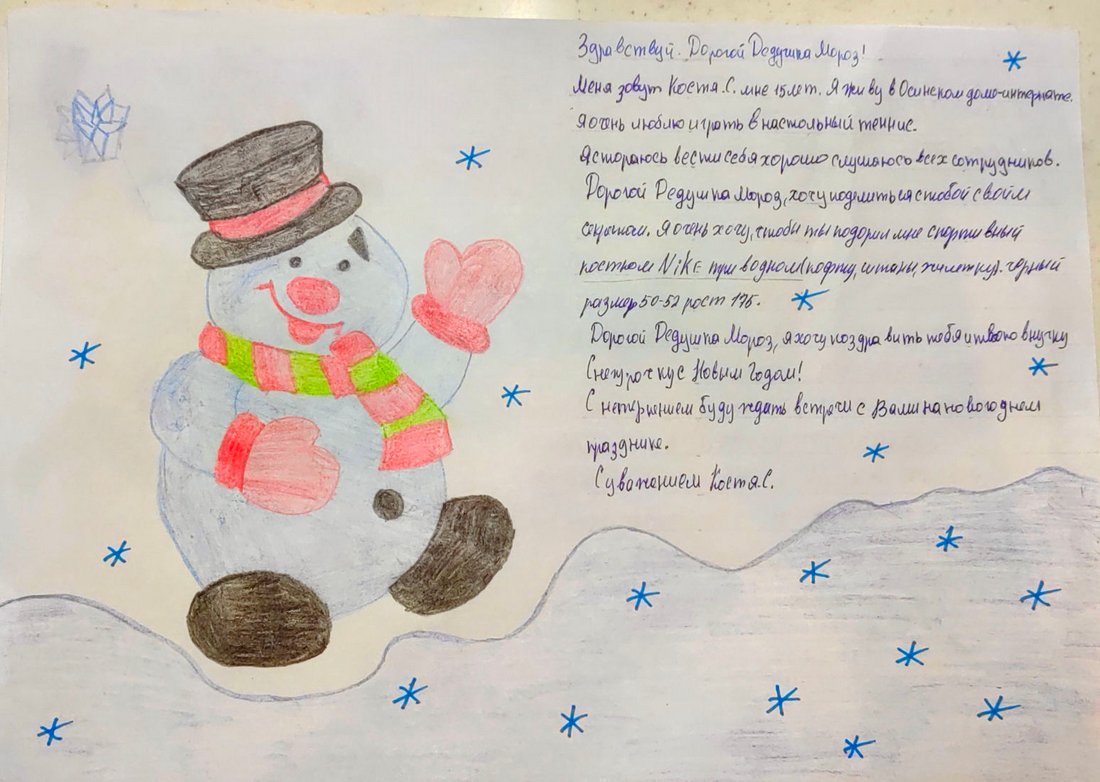 Здравствуй. Дорогой Дедушка Мороз!
Меня зовут Костя.С. мне 15 лет. Я живу в Осинском домо-интернате.
Я очень люблю играть в настольный теннис.
Я стараюсь вести себя хорошо слушаюсь всех сотрудников.
Дорогой Дедушка Мороз, хочу поделиться с тобой своим
Я очень хочу, чтобы ты подарил мне спортивный
костюм NiKE (кофту, штаны, жилетку). чёрный
размер 50-52 рост 175.
Дорогой Дедушка Мороз, я хочу поздравить тебя и твою внучку
Снегурочку с Новым Годом!
С нетерпением буду ждать встречи с Вами на новогоднем
празднике.
С уважением Костя.С.